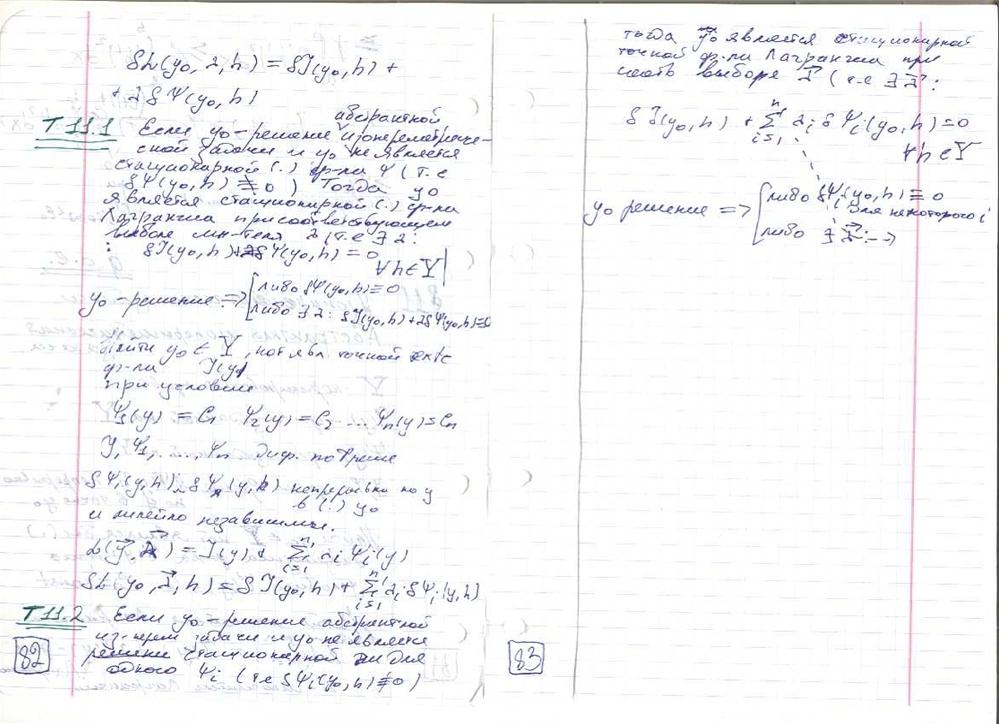 δL(y₀, λ, h) = δJ(y₀, h) +
+ λ δΨ(y₀, h)
абстрактной
Т 11.1 Если y₀ - решение изопериметриче-
ской задачи и y₀ не является
стационарной (.) ф-ла Ψ (т.е
δΨ(y₀, h) ≢ 0) Тогда y₀
является стационарной (.) ф-ла
Лагранжа при соответствующем
выборе мн-теля λ (т.е ∃ λ:
: δJ(y₀, h) + λδΨ(y₀, h) = 0
∀h ∈ Y
y₀ - решение => [ либо δΨ(y₀, h) ≡ 0
либо ∃ λ: δJ(y₀, h) + λδΨ(y₀, h) ≡ 0
Найти y₀ ∈ Y, кот явл точкой экстр
ф-ла J(y)
при условии
Ψ₁(y) = C₁ Ψ₂(y) = C₂ ... Ψₙ(y) = Cₙ
J, Ψ₁, ..., Ψₙ диф. по Гато
δΨ₁(y, h) .. δΨₙ(y, h) непрерывны по y
в (.) y₀
и линейно независимы.
L(y, λ⃗) = J(y) + Σⁿᵢ₌₁ λᵢ Ψᵢ(y)
δL(y₀, λ⃗, h) = δJ(y₀, h) + Σⁿᵢ₌₁ λᵢ δΨᵢ(y, h)
Т 11.2 Если y₀ - решение абстрактной
из-перем задачи и y₀ не является
стационарной для
одного Ψᵢ (т.е δΨᵢ(y₀, h) ≢ 0)
82
тогда y₀ является стационарной
точкой ф-ла Лагранжа при
выборе λ⃗ (т.е ∃ λ⃗:
δJ(y₀, h) + Σⁿᵢ₌₁ λᵢ δΨᵢ(y₀, h) = 0
∀h ∈ Y
y₀ решение => [ либо δΨᵢ(y₀, h) ≡ 0
для некоторого i
либо ∃ λ⃗: →
83